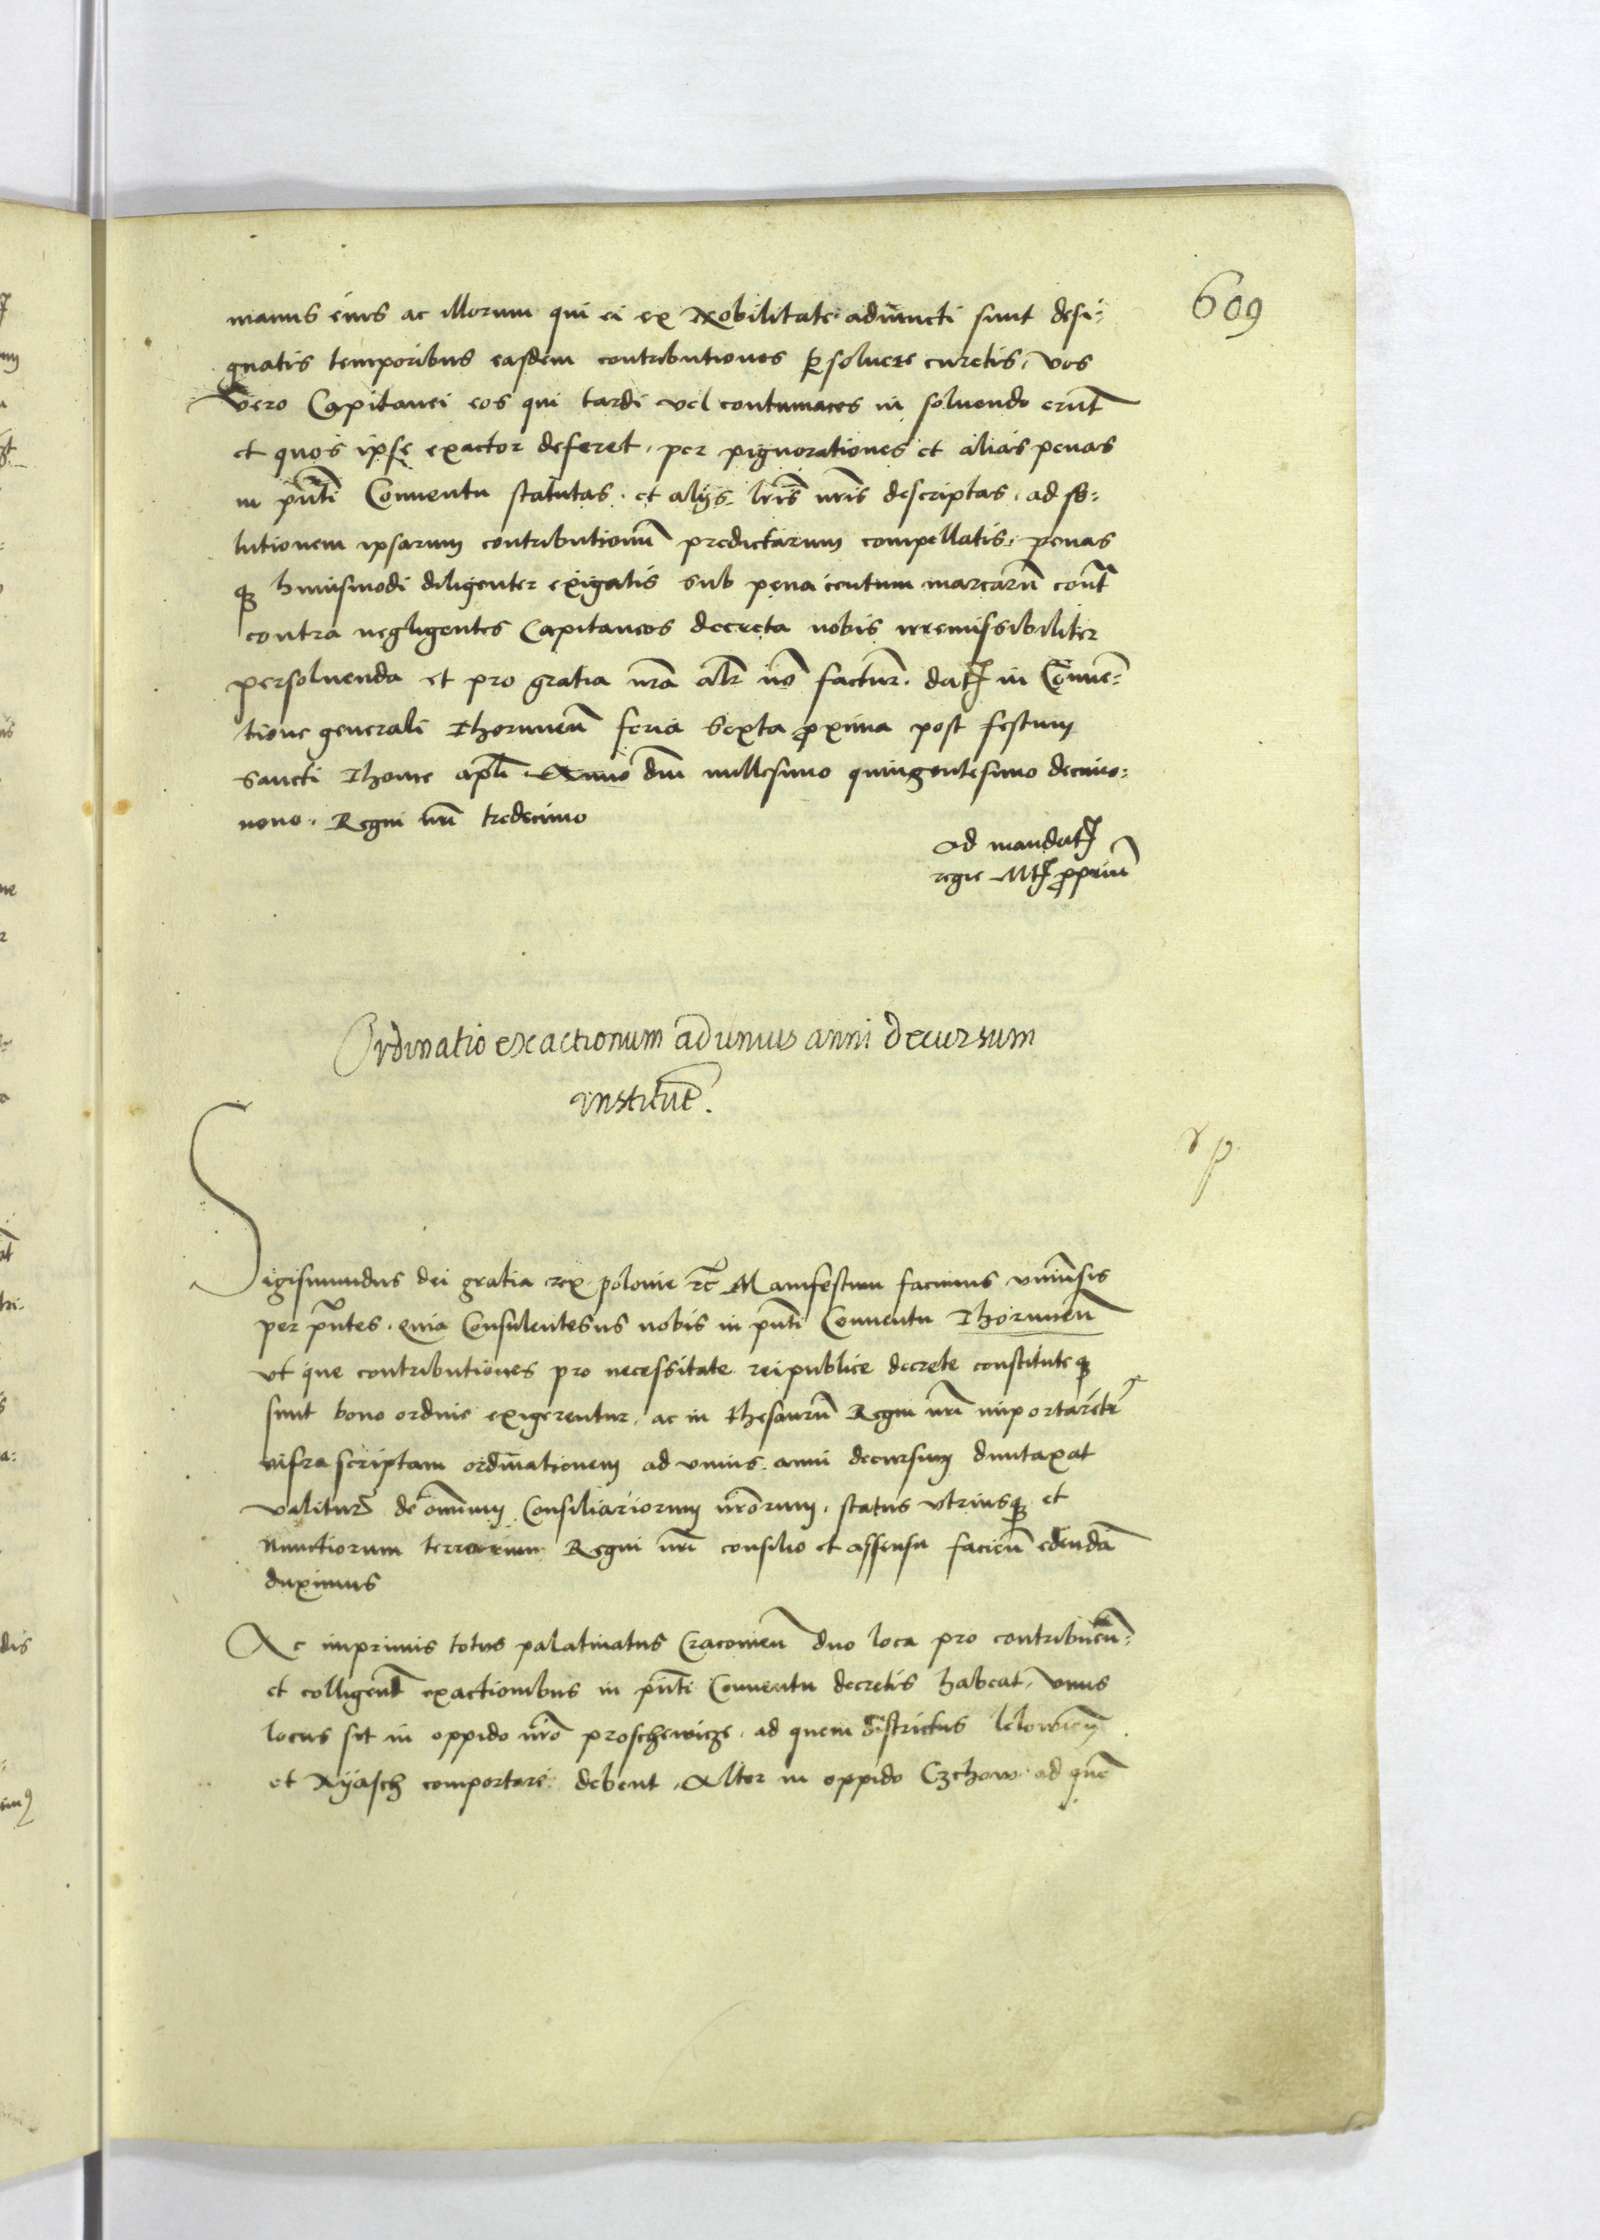 609
manus eius ac illorum qui ei ex Nobilitate adiuncti sunt desi=
gnatis temporibus easdem contributiones psoluere curetis, vos
vero Capitanei eos qui tardi vel contumaces in soluendo erunt
et quos ipse exactor deferet, per pignorationes et alias penas
in pnti Conuentu statutas. et alijs lris nris descriptas, ad so=
lutionem ipsarum contributionu predictarum compellatis, penas
q3 huiusmodi diligenter exigatis sub pena centum marcaru
contra negligentes Capitaneos decreta nobis irremissibiliter
persoluenda et pro gratia nra alr no factur. dat in Conuen=
tione generali Thorunen feria sexta proxima post festum
sancti Thome apli. Anno dni millesimo quingentesimo decimo=
nono. Regni nri tredecimo
Ad mandat
regie Mt propriu
Ordinatio exactionum ad unius anni decursum
institut.
Sigismundus dei gratia rex polonie rc Manifestum facimus vniuersis
per pntes. quia Consulentes nobis in pnti Conuentu Thorunen
vt que contributiones pro necessitate reipublice decrete constituteq3
sunt bono ordine exigerentur, ac in thesauru Regni nri importaretr
infrascriptam ordinationem ad vnius anni decursum duntaxat
valitur de omnium Consiliariorum nrorum, status vtriusq3 et
Nunctiorum terrarum Regni nri consilio et assensu facien edenda
duximus
Ac imprimis totus palatinatus Cracouien duo loca pro contribuen=
et colligent exactionibus in pnti Conuentu decretis habeat, vnus
locus sit in oppido nro proschewicze, ad quem districtus lelowien
et Xyasch comportare debent, Alter in oppido Czchow ad que